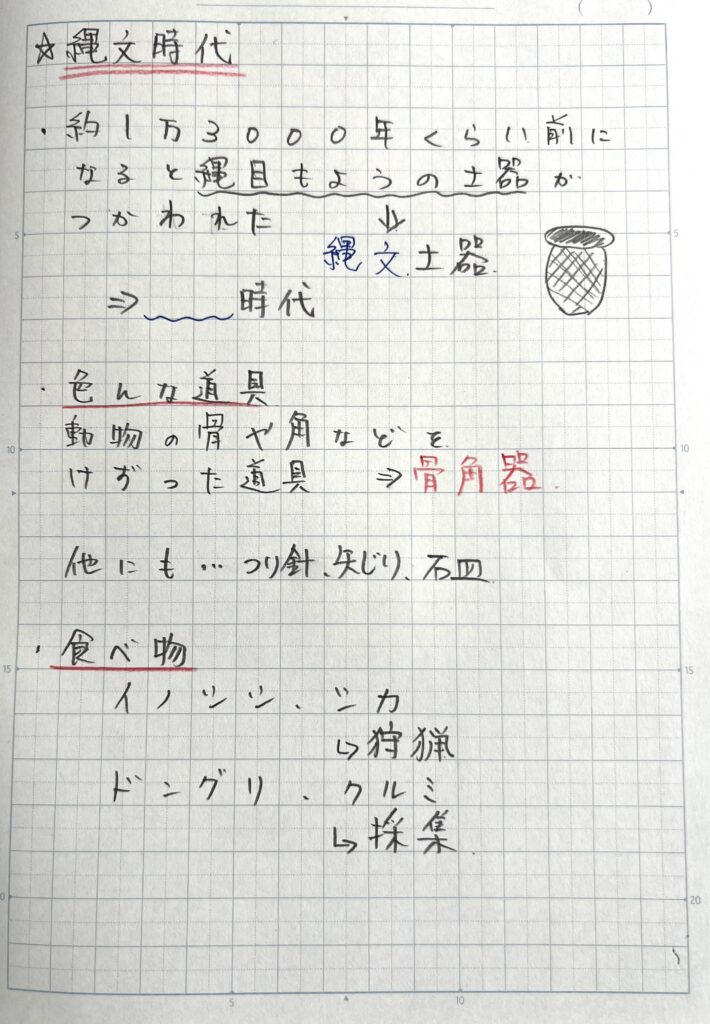 ☆縄文時代
・約1万3000年くらい前に
なると縄目もようの土器が
つかわれた ↓
縄文土器
⇒ 時代
・色んな道具
動物の骨や角などを
けずった道具 ⇒骨角器.
他にも…つり針、矢じり、石皿
・食べ物
イノシシ、シカ
↳狩猟
ドングリ、クルミ
↳採集